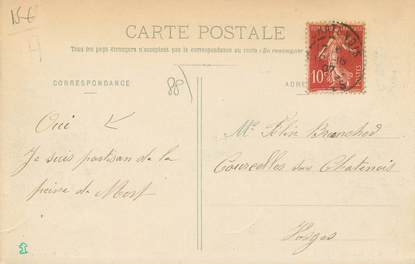 15€
CARTE POSTALE
Tous les pays étrangers n'acceptent pas la correspondance au recto. (Se renseigner
CORRESPONDANCE
88
10
Oui
Je suis partisan de la
peine de Mort
Mr Félix Branched
Courcelles sous Chatenois
Vosges